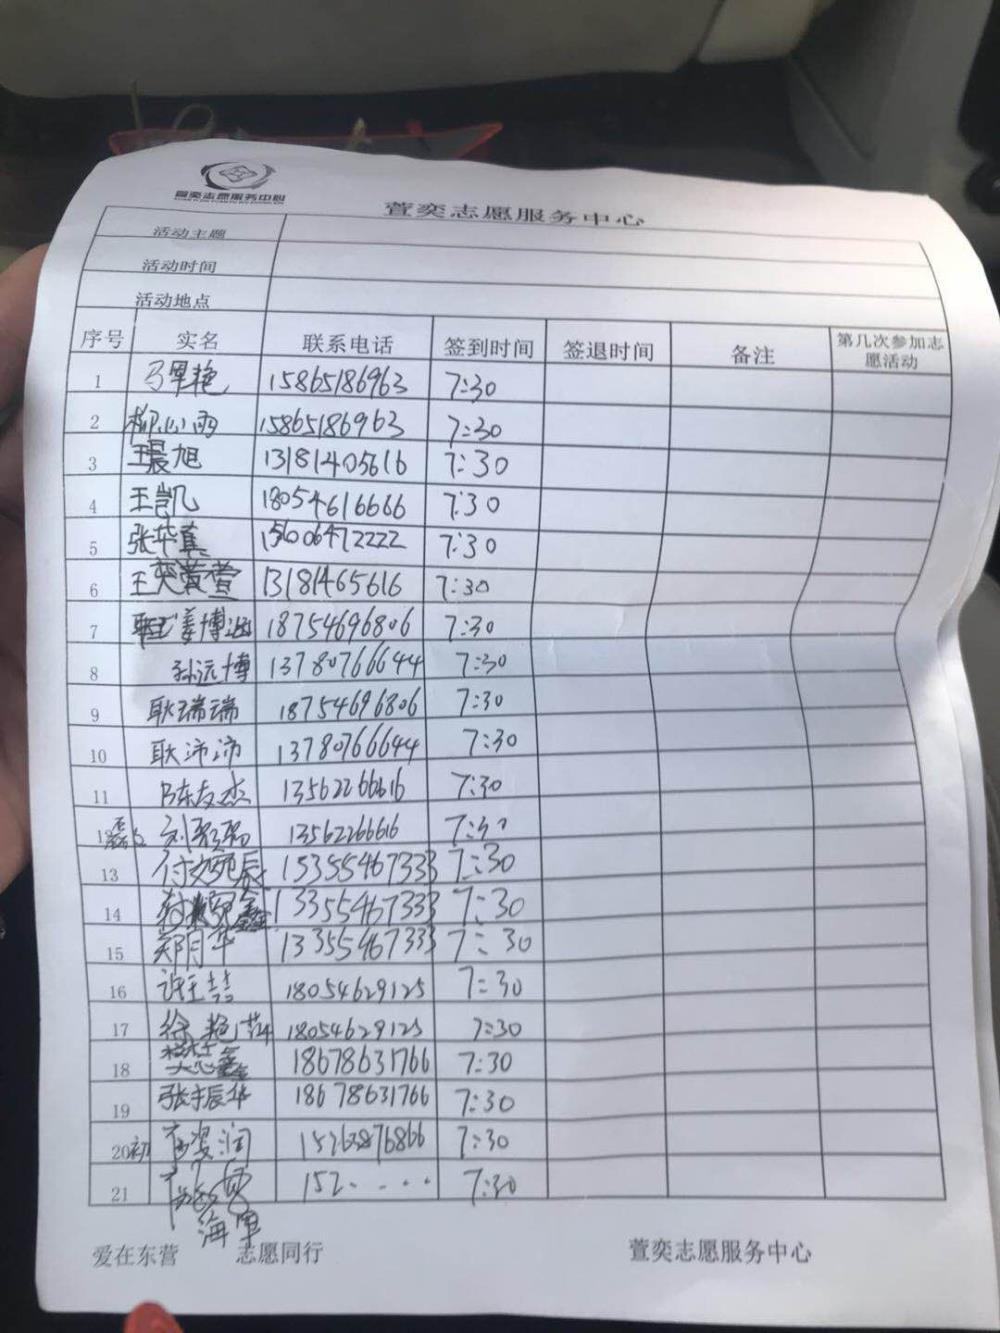 萱奕志愿服务中心
萱奕志愿服务中心
活动主题
活动时间
活动地点
序号 实名 联系电话 签到时间 签退时间 备注 第几次参加志愿活动
1 15865186963 7:30
2 柳心雨 15865186963 7:30
3 王晨旭 13181405616 7:30
4 王凯 18054616666 7:30
5 张华真 15606472222 7:30
6 王奕萱 13181465616 7:30
7 姜博 18754696806 7:30
8 孙沅博 13780766644 7:30
9 耿瑞瑞 18754696806 7:30
10 耿沛沛 13780766644 7:30
11 陈友杰 13562266616 7:30
12 刘 13562266616 7:30
13 付婉辰 15355467333 7:30
14 鑫 13355467333 7:30
15 郑月华 13355467333 7:30
16 许王喆 18054629125 7:30
17 徐艳萍 18054629125 7:30
18 樊志鑫 18678631766 7:30
19 张振华 18678631766 7:30
20 初 润 15263876866 7:30
21 152· · · · 7:30
海军
爱在东营 志愿同行 萱奕志愿服务中心